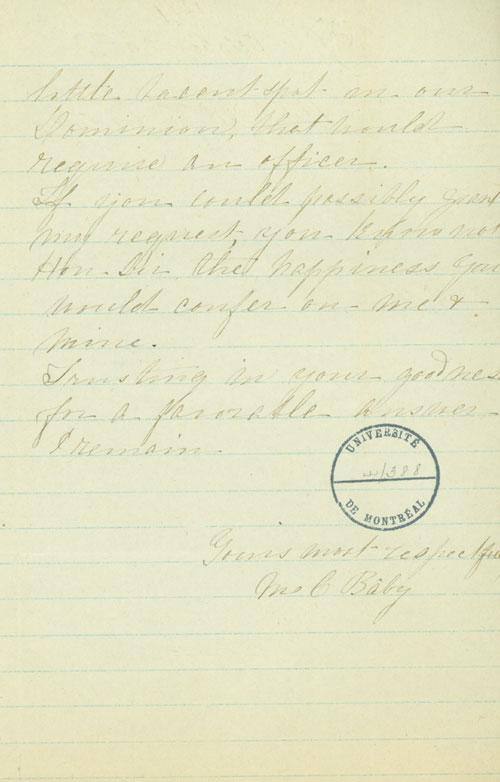 little vacant spot in our
Dominion, that would
require an officer.
If you could possibly grant
my request, you know not
Hon. Sir the happiness you
would confer on me &
mine.
Trusting in your goodness
for a favorable answer
I remain.
UNIVERSITÉ
DE MONTRÉAL
Yours most respectfu
C Bâby